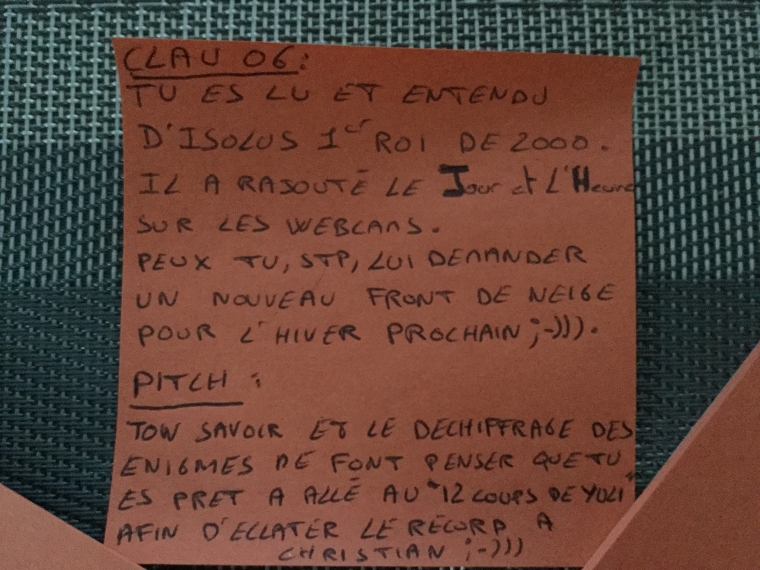 CLAU 06:
TU ES LU ET ENTENDU
D'ISOLUS 1er ROI DE 2000.
IL A RAJOUTÉ LE Jour et L'Heure
SUR LES WEBCAMS.
PEUX TU, STP, LUI DEMANDER
UN NOUVEAU FRONT DE NEIGE
POUR L'HIVER PROCHAIN ;-))).
PITCH :
TON SAVOIR ET LE DECHIFFRAGE DES
ENIGMES ME FONT PENSER QUE TU
ES PRET A ALLÉ AU "12 COUPS DE YULI"
AFIN D'ECLATER LE RECORD A
CHRISTIAN ;-)))